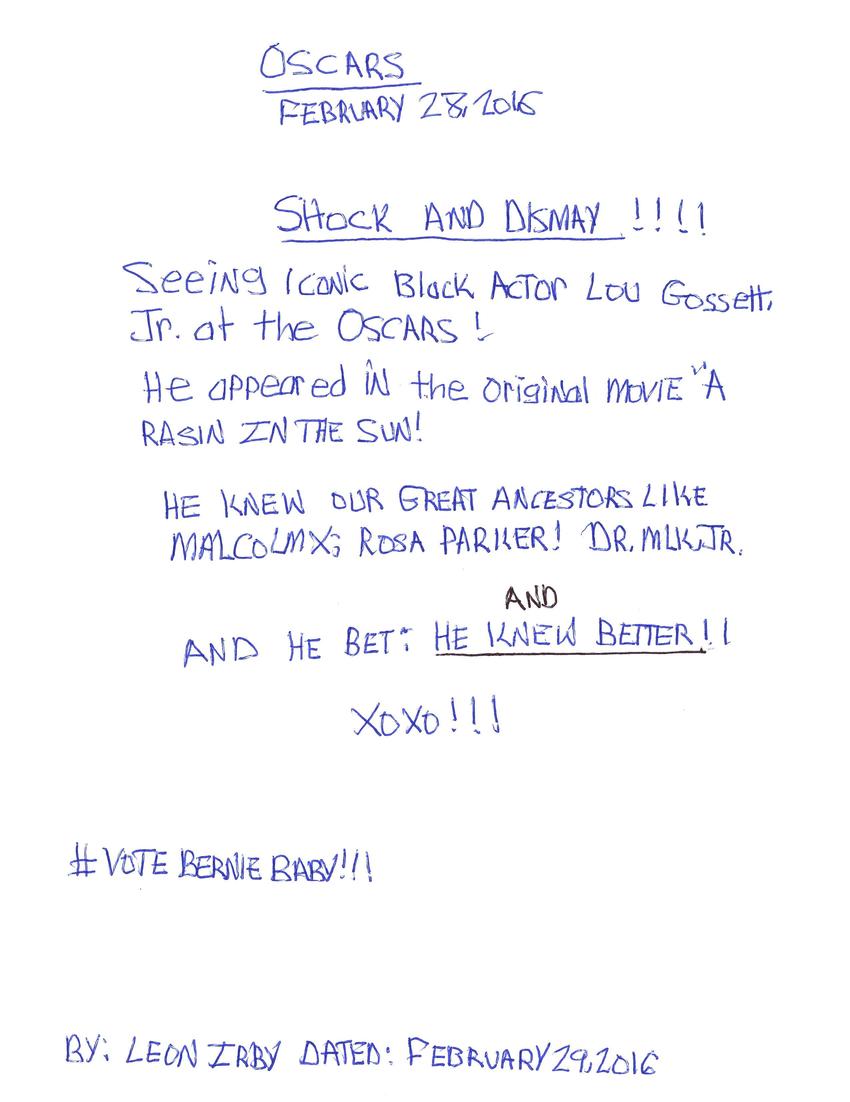 OSCARS
FEBRUARY 28, 2016
SHOCK AND DISMAY !!!!
Seeing Iconic Black ACTOR LOU Gossett,
Jr. at the OSCARS !
He appeared IN the original MOVIE "A
RASIN IN THE SUN!
HE KNEW OUR GREAT ANCESTORS LIKE
MALCOLM X; ROSA PARKER! DR. MLK, JR.
AND
AND HE BET: HE KNEW BETTER!!
XOXO!!!
#VOTE BERNIE BABY!!!
BY: LEON IRBY DATED: FEBRUARY 29, 2016